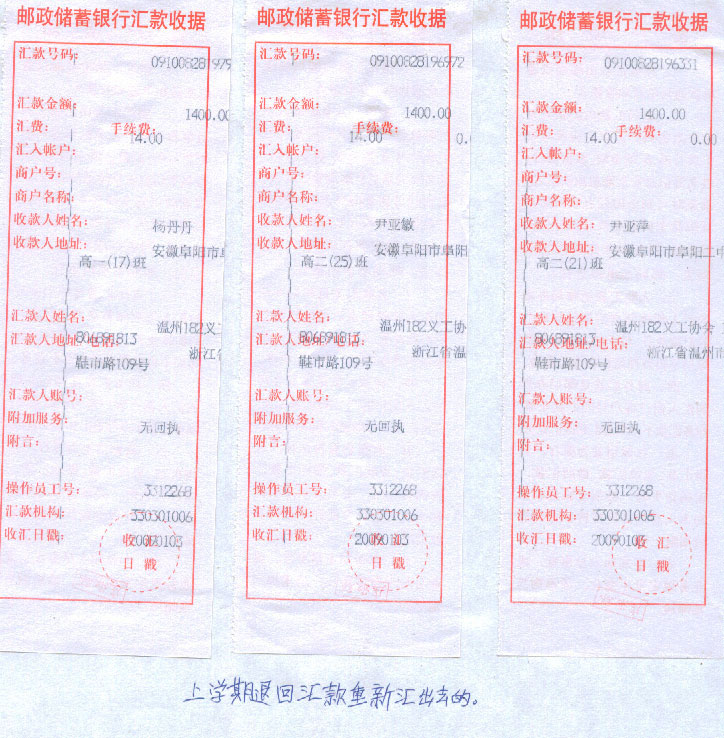 邮政储蓄银行汇款收据
汇款号码:
09100828 979
汇款金额:
1400.00
汇费:
手续费:
14.00
汇入帐户:
商户号:
商户名称:
收款人姓名:
杨丹丹
收款人地址:
安徽阜阳市阜
高一(17)班
汇款人姓名:
温州182义工
汇款人地址 电话:
806891813
浙江省
鞋市路109号
汇款人账号:
附加服务:
无回执
附言:
操作员工号:
3312268
汇款机构:
330301006
收汇日戳:
20090103
收 汇
日 戳
邮政储蓄银行汇款收据
汇款号码:
09100828196972
汇款金额:
1400.00
汇费:
手续费:
14.00
0.
汇入帐户:
商户号:
商户名称:
收款人姓名:
尹亚敏
收款人地址:
安徽阜阳市阜阳
高二(25)班
汇款人姓名:
温州182义工协
汇款人地址 电话:
806891813
浙江省温
鞋市路109号
汇款人账号:
附加服务:
无回执
附言:
操作员工号:
3312268
汇款机构:
330301006
收汇日戳:
20090103
收 汇
日 戳
邮政储蓄银行汇款收据
汇款号码:
09100828196331
汇款金额:
1400.00
汇费:
手续费:
14.00
0.00
汇入帐户:
商户号:
商户名称:
收款人姓名:
尹亚萍
收款人地址:
安徽阜阳市阜阳二中
高二(21)班
汇款人姓名:
温州182义工协会
汇款人地址 电话:
806891813
浙江省温州市
鞋市路109号
汇款人账号:
附加服务:
无回执
附言:
操作员工号:
3312268
汇款机构:
330301006
收汇日戳:
20090103
收 汇
日 戳
上学期退回汇款重新汇出去的。